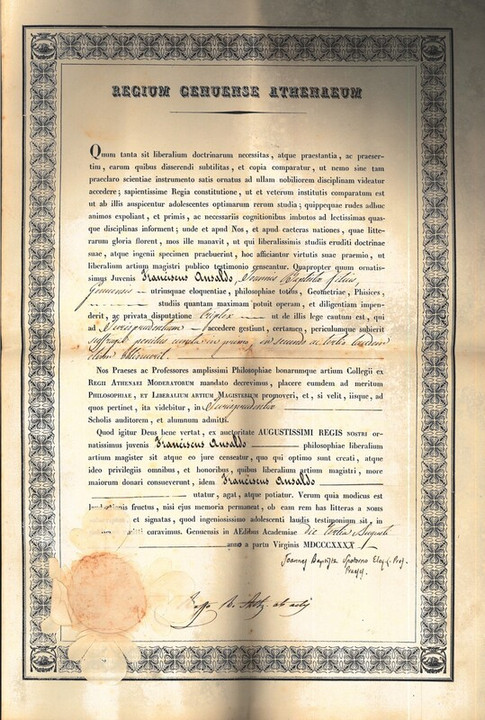 REGIUM GENUENSE ATHENAEUM
Quum tanta sit liberalium doctrinarum necessitas, atque praestantia, ac praeser-
tim, earum quibus disserendi subtilitas, et copia comparatur, ut nemo sine tam
praeclaro scientiae instrumento satis ornatus ad ullam nobiliorem disciplinam videatur
accedere; sapientissime Regia constitutione, ut et veterum institutis comparatum est
ut ab illis auspicentur adolescentes optimarum rerum studia; quippequae rudes adhuc
animos expoliant, et primis, ac necessariis cognitionibus imbutos ad lectissimas quas-
que disciplinas informent; unde et apud Nos, et apud caeteras nationes, quae litte-
rarum gloria florent, mos ille manavit, ut qui liberalissimis studiis eruditi doctrinae
suae, atque ingenii specimen praebuerint, hoc afficiantur virtutis suae praemio, ut
liberalium artium magistri publico testimonio censeantur. Quapropter quum ornatis-
simus Juvenis Franciscus Ansaldo, Joannis Baptistae filius,
Genuensis utriusque eloquentiae, philosophiae totius, Geometriae, Phisices,
studiis quantam maximam potuit operam, et diligentiam impen-
derit, ac privata disputatione triplex ut de illis lege cautum est, qui
ad Jurisprudentiam accedere gestiunt, certamen, periculumque subierit
suffragii in primo, in secundo ac tertio
Nos Praeses ac Professores amplissimi Philosophiae bonarumque artium Collegii ex
REGII ATHENAEI MODERATORUM mandato decrevimus, placere eumdem ad meritum
PHILOSOPHIAE, ET LIBERALIUM ARTIUM MAGISTERIUM promoveri, et, si velit, iisque, ad
quos pertinet, ita videbitur, in Jurisprudentiae
Scholis auditorem, et alumnum admitti.
Quod igitur Deus bene vertat, ex auctoritate AUGUSTISSIMI REGIS NOSTRI or-
natissimus juvenis Franciscus Ansaldo philosophiae liberalium
artium magister sit atque eo jure censeatur, quo qui optimo sunt creati, atque
ideo privilegiis omnibus, et honoribus, quibus liberalium artium magistri, more
maiorum donari consueverunt, idem Franciscus Ansaldo
utatur, agat, atque potiatur. Verum quia modicus est
fructus, nisi ejus memoria permaneat, ob eam rem has litteras a NOBIS
et signatas, quod ingeniosissimo adolescenti laudis testimonium sit, in
curavimus. Genuensis in AEdibus Academiae die tertia Augusti
anno a partu Virginis MDCCCXXXX
Joannes Baptista Spotorno Eloq. Prof.
Praeses.